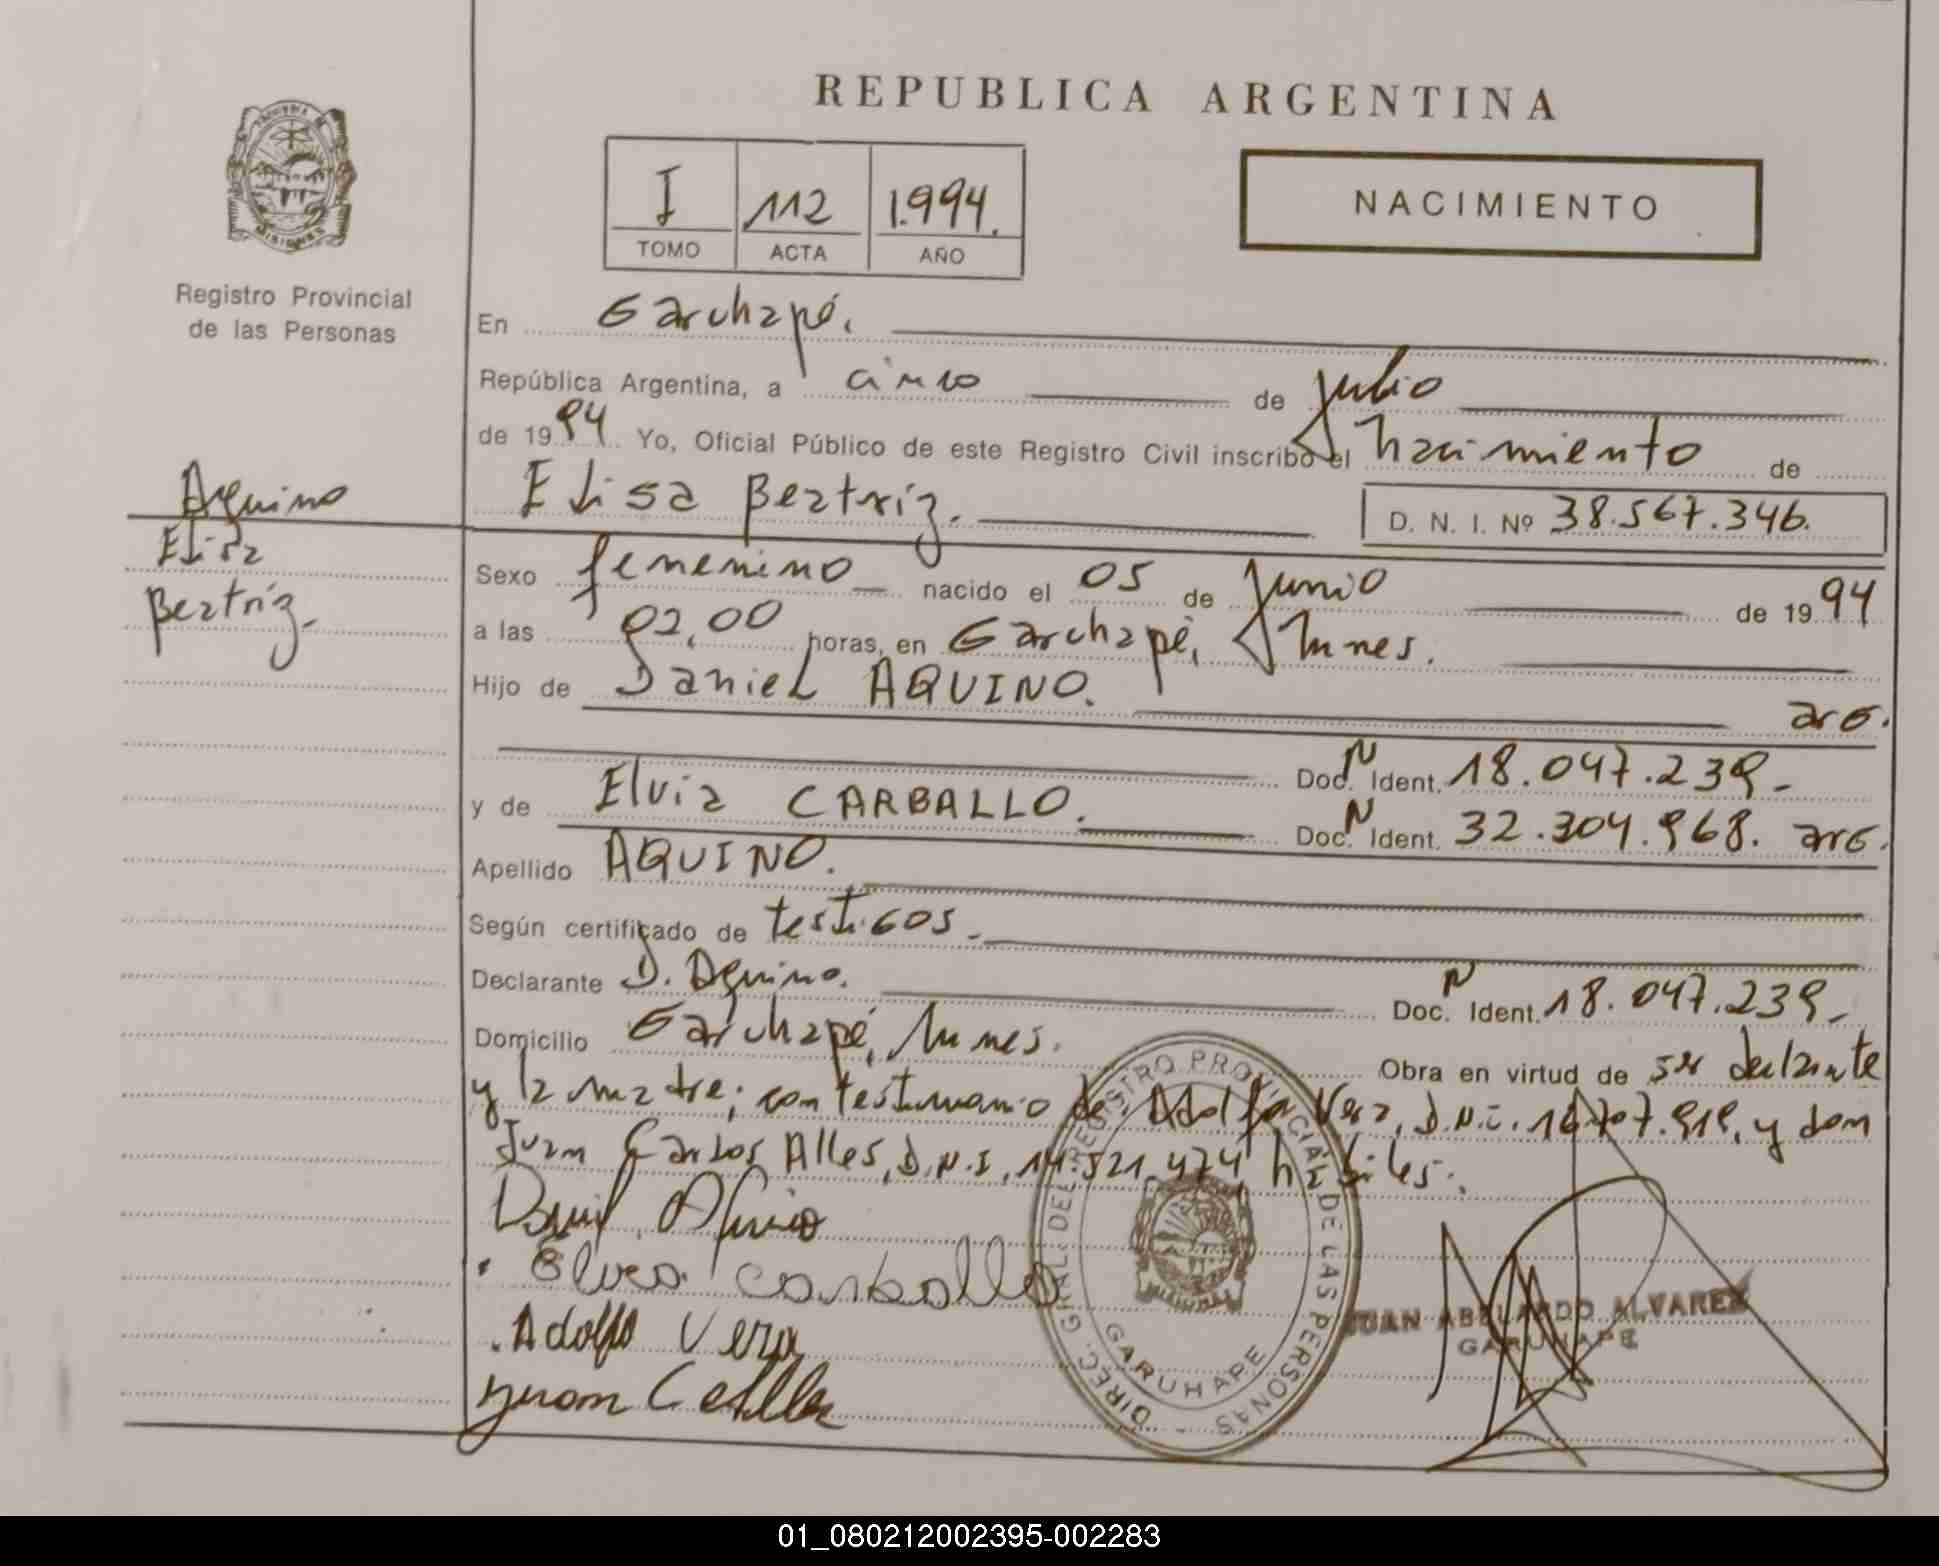 REPUBLICA ARGENTINA
PROVINCIA DE
MISIONES
Registro Provincial
de las Personas
I 112 1.994.
TOMO ACTA AÑO
NACIMIENTO
En Garuhapé.
República Argentina, a cinco de Julio
de 1994 Yo, Oficial Público de este Registro Civil inscribo el nacimiento de
Elisa Beatriz. D. N. I. Nº 38.567.346.
Aquino
Elisa
Beatriz.
Sexo femenino nacido el 05 de Junio de 1994
a las 02,00 horas, en Garuhapé, Mnes.
Hijo de Daniel AQUINO. arg.
Doc. N Ident. 18.047.239.-
y de Elvia CARBALLO. Doc. N Ident. 32.304.968. arg.
Apellido AQUINO.
Según certificado de testigos.
Declarante D. Aquino. Doc. N Ident. 18.047.239.-
Domicilio Garuhapé, Mnes. Obra en virtud de ser declarante
y la madre; con testimonio de Adolfo Vera, D.N.I. y don
Juan Carlos Alles, D.N.I. 14.521.474 hábiles.
Daniel Aquino
Elvia Carballo
Adolfo Vera
Juan C Alles
DIREC. GRAL. DEL REGISTRO PROVINCIAL DE LAS PERSONAS -
GARUHAPE
JUAN ABELARDO ALVAREZ
GARUHAPE
01_080212002395-002283